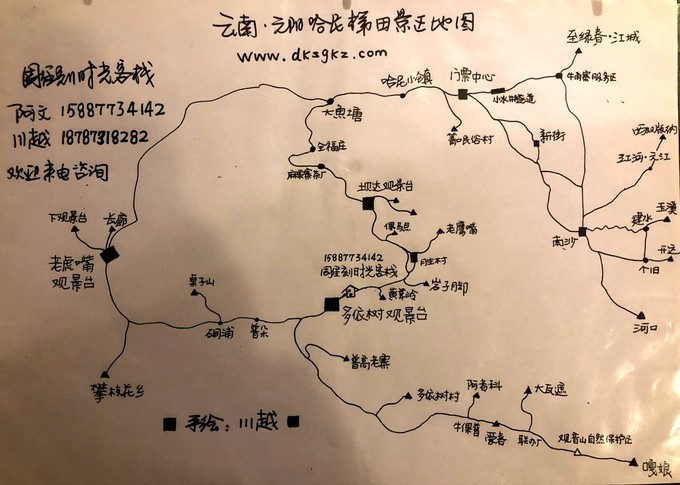 云南·元阳哈尼梯田景区地图
www.dksgkz.com
阿文 15887734142
川越 18787318282
欢迎来电咨询
至绿春·江城
牛角寨服务区
哈尼小镇
门票中心
小水井隧道
大鱼塘
箐口民俗村
新街
西双版纳
红河·元江
全福庄
麻栗寨茶厂
坝达观景台
玉溪
建水
下观景台
长廊
保马点
老鹰嘴
南沙
开远
个旧
老虎嘴
观景台
15887734142
胜村
岩子脚
黄草岭
桌子山
多依树观景台
河口
硐浦
普朵
普高老寨
攀枝花乡
多依树村
阿者科
大瓦遮
牛倮普
爱春
联办厂
观音山自然保护区
嘎娘
手绘：川越